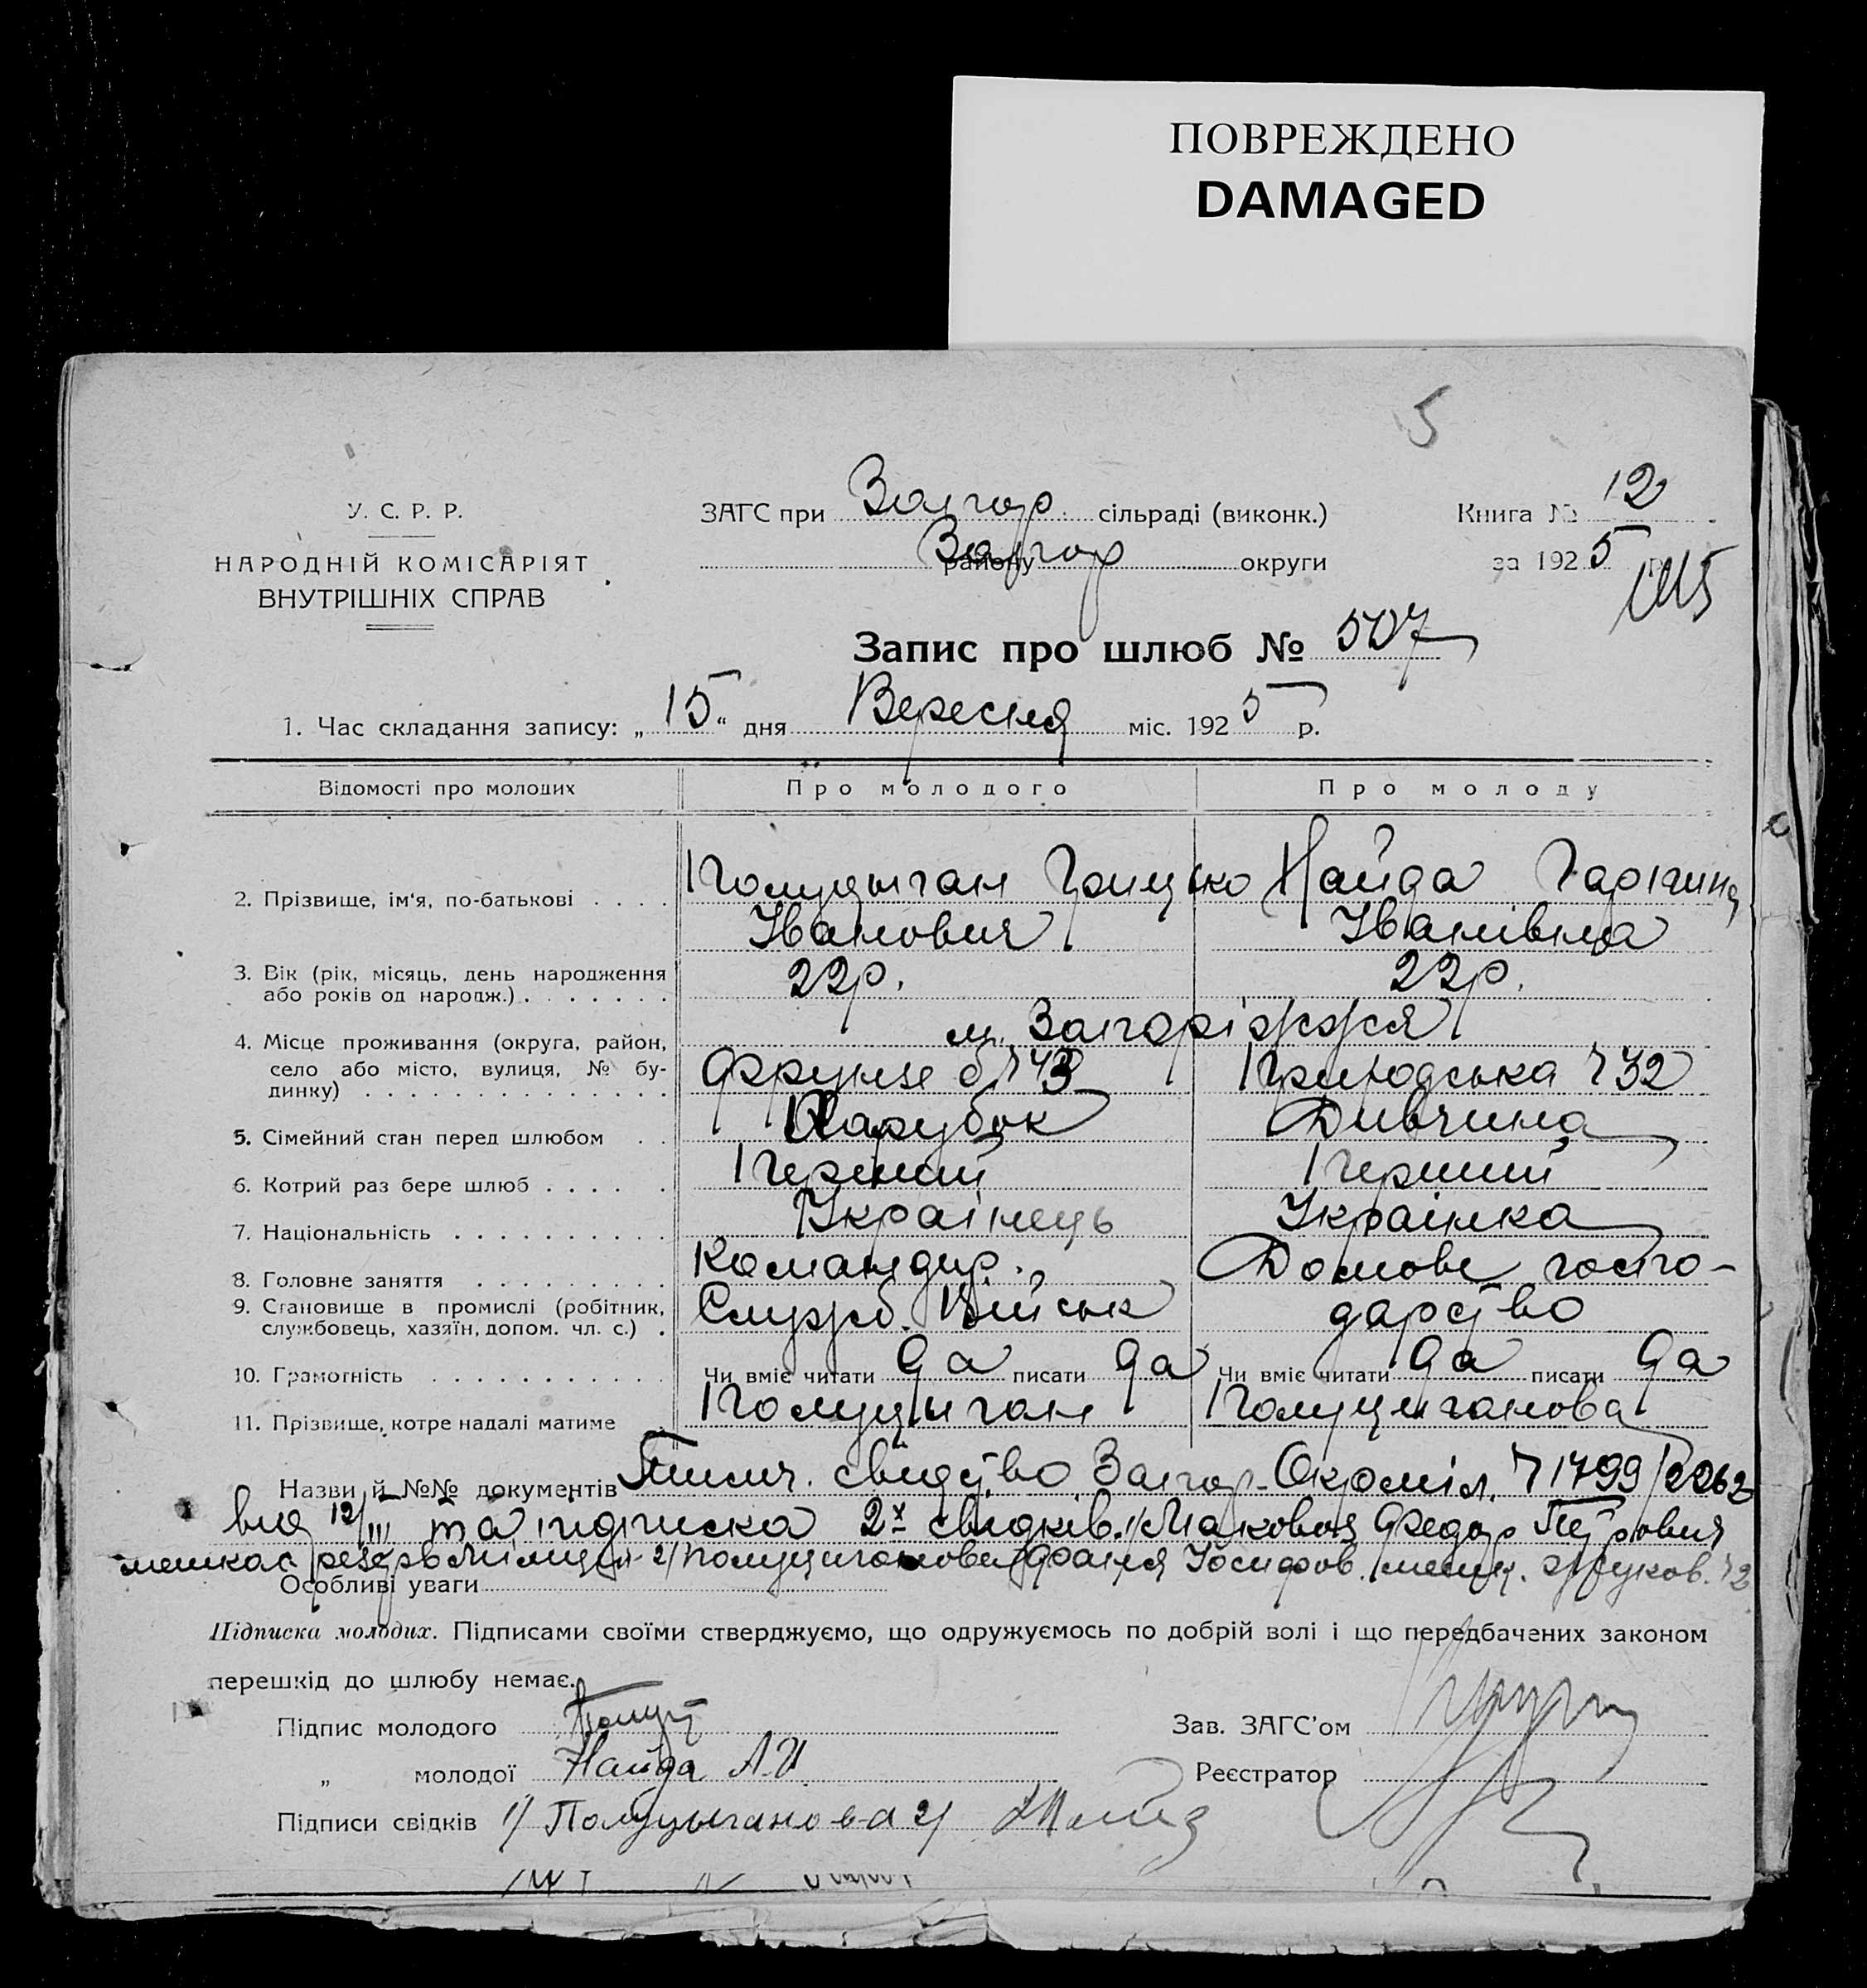 ПОВРЕЖДЕНО
DAMAGED
5
У. С. Р. Р.
НАРОДНІЙ КОМІСАРІЯТ
ВНУТРІШНІХ СПРАВ
ЗАГС при Запор. сільраді (виконк.)
району Запор округи
Книга № 12
за 1925 р.
Запис про шлюб № 507
1. Час складання запису: „15“ дня Вересня міс. 1925 р.
Відомості про молодих Про молодого Про молоду
2. Прізвище, ім'я, по-батькові . . . . Полуцыган Грицько Найда
Іванович Іванівна
3. Вік (рік, місяць, день народження
або років од народж.) . . . . . . . 22р. 22р.
м. Запоріжжя
4. Місце проживання (округа, район,
село або місто, вулиця, № бу-
динку) . . . . . . . . . . . . . . Фрунзе
5. Сімейний стан перед шлюбом . . Парубок Дивчина
6. Котрий раз бере шлюб . . . . . Перший Перший
7. Національність . . . . . . . . . . Українець Українка
8. Головне заняття . . . . . . . . . Командир. Домове госпо-
9. Становище в промислі (робітник,
службовець, хазяїн, допом. чл. с.) . Служб. Військ дарство
10. Грамотність . . . . . . . . . . . Чи вміє читати да писати да Чи вміє читати да писати да
11. Прізвище, котре надалі матиме Полуцыган Полуциганова
Назви й №№ документів свидство Запор. Окрміл. 1799/2262
вид 12/III та підписка 2х свидків. 1/ Маковоз Федор Петрович
мешкає 2/ Полуциганова Іосифов. мешк.
Особливі уваги
Підписка молодих. Підписами своїми стверджуємо, що одружуємось по добрій волі і що передбачених законом
перешкід до шлюбу немає.
Підпис молодого Зав. ЗАГС'ом
„ молодої Найда А.И. Реєстратор
Підписи свідків 1/ Полуцыганова 2/